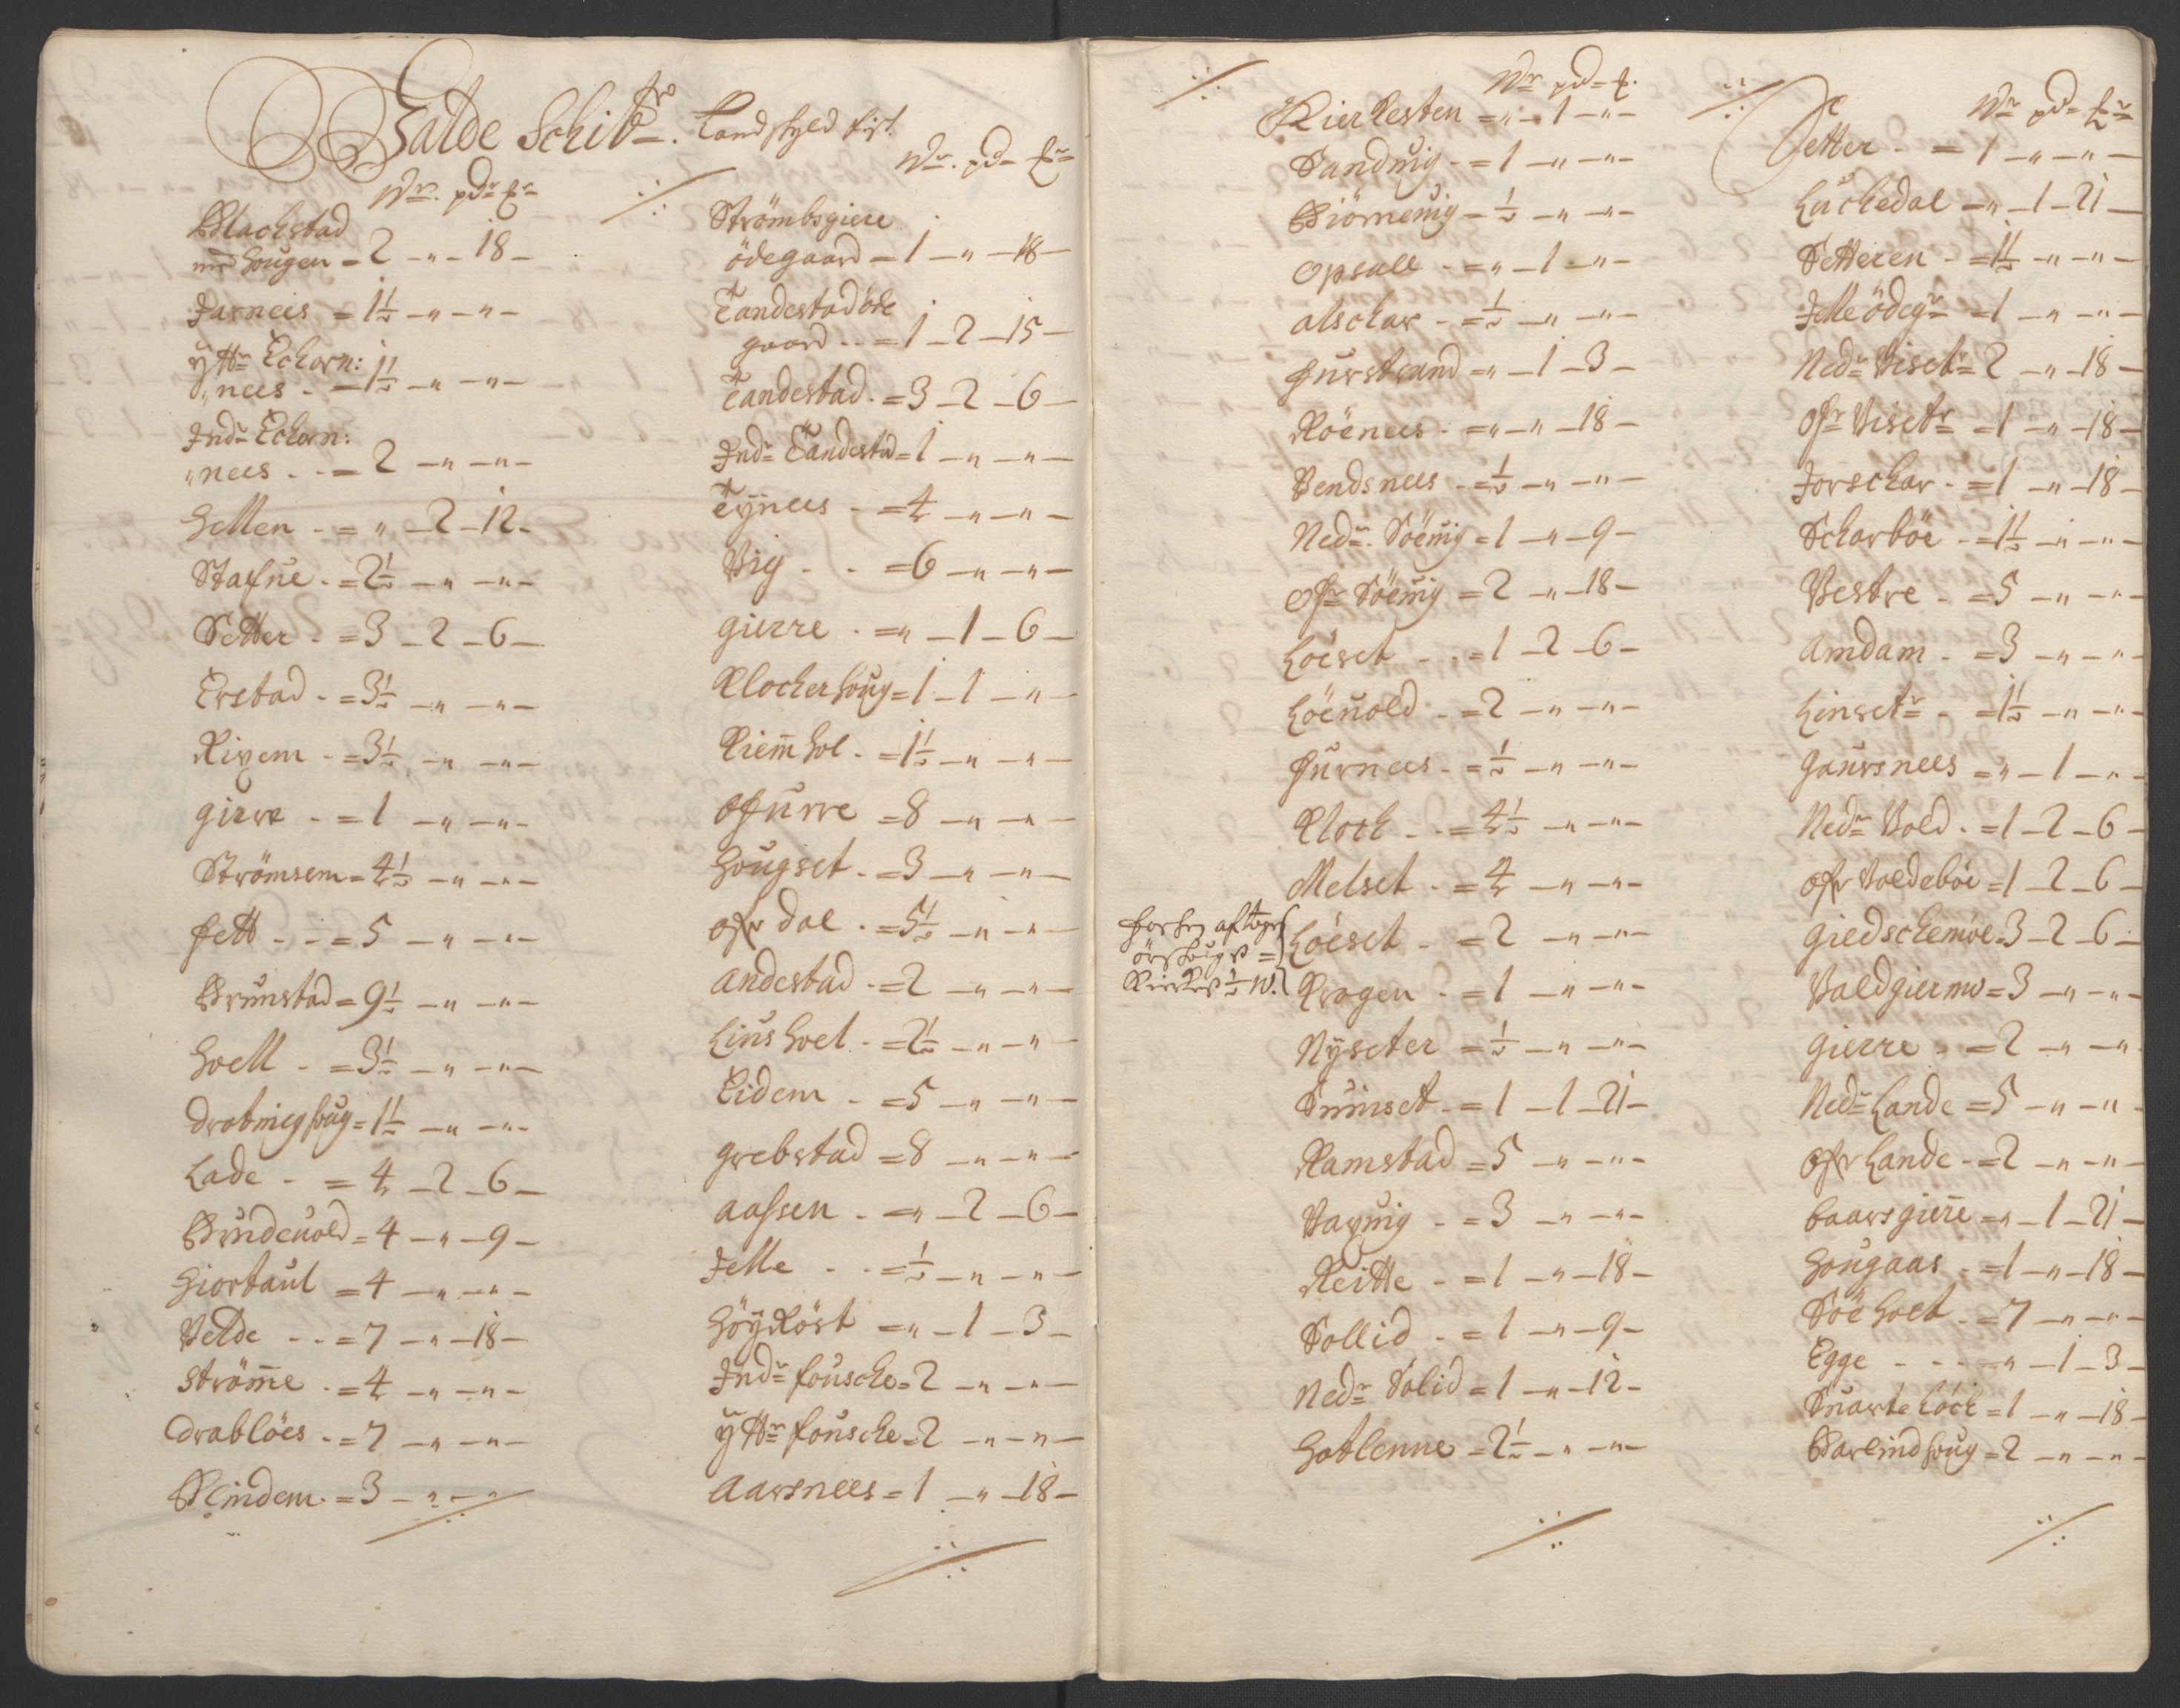 Valde Schibr. Landskyld tist.
Wr. pdr Lr
Blachstad
med Hougen = 2 - " - 18 -
Jarnees = 1½ - " - " -
yttr Echorn:
"nees - = 1½ - " - " -
Indr Echorn:
"nees - - = 2 - " - " -
Hellen - = " - 2 - 12 -
Stafne - = 2½ - " - " -
Setter - = 3 - 2 - 6 -
Erstad - = 3½ - " - " -
Rixem - = 3½ - " - " -
gierre - = 1 - " - " -
Strömsem = 4½ - " - " -
fett - - = 5 - " - " -
Brunstad = 9½ - " - " -
Hoell - = 3½ - " - " -
Drotninghoug = 1½ - " - " -
Lade - = 4 - 2 - 6 -
Brudeuold = 4 - " - 9 -
Hiortaul = 4 - " - " -
Velde - - = 7 - " - 18 -
Ström̅e - = 4 - " - " -
Drablöes - = 7 - " - " -
Blindem = 3 - " - "
Wr. pd- Lr
Strömbsgiere
ödegaard = 1 - " - 18 -
Tandestadöde
gaard - - = 1 - 2 - 15 -
Tandestad - = 3 - 2 - 6 -
Indr Tandestad = 1 - " - " -
Tÿnees - = 4 - " - " -
Vig - - = 6 - " - " -
gierre - = " - 1 - 6 -
Klocherhoug = 1 - 1 - " -
Riem̅hol - = 1½ - " - " -
Ofurre = 8 - " - " -
Hougset - = 3 - " - " -
Ofr dal - = 5½ - " - " -
Andestad - = 2 - " - " -
Liushoel - = 2½ - " - " -
Eidem - = 5 - " - " -
Grebstad = 8 - " - " -
Aassen - = " - 2 - 6 -
Jelle - - = ½ - " - " -
Höÿköst = " - 1 - 3 -
Indr fousche = 2 - " - " -
yttr fousche = 2 - " - " -
Aarsnees = 1 - " - 18 -
Wr pd- L.
Kierkesten = " - 1 - " -
Sanduig - = 1 - " - " -
Biörneuig = ½ - " - " -
Opsall - = " - 1 - " -
Alschar - = ½ - " - " -
furstrand = " - 1 - 3 -
Röenees - = " - " - 18 -
Vendsnees - = ½ - " - " -
Nedr. Söeuig = 1 - " - 9 -
Ofr Söeuig = 2 - " - 18 -
Löeset - - = 1 - 2 - 6 -
Löeuold - = 2 - " - " -
furnees - = ½ - " - " -
Kloch - - = 4½ - " - " -
Melset - = 4 - " - " -
Löeset - = 2 - " - " -
Krogen - = 1 - " - " -
Nÿseter = ½ - " - " -
Suinset - = 1 - 1 - 21 -
Ramstad = 5 - " - " -
Vaxuig - = 3 - " - " -
Reitte - = 1 - " - 18 -
Sollid - = 1 - " - 9 -
Nedr Solid = 1 - " - 12 -
Hotlenne = 2½ - " - " -
Wr pd- Lr
Setter - = 1 - " - " -
Luchedal = " - 1 - 21 -
Setteren - = 1½ - " - " -
Jelleödegr = 1 - " - " -
Nedr Visetr = 2 - " - 18 -
Ofr Visetr = 1 - " - 18 -
Jorschar - = 1 - " - 18 -
Scharböe - = 1½ - " - " -
Vestre - = 5 - " - " -
Amdam - = 3 - " - " -
Linsetr - = 1½ - " - " -
Gaursnees = " - 1 - " -
Nedr Vold - = 1 - 2 - 6 -
Ofr Voldeböe = 1 - 2 - 6 -
Giedschemoe = 3 - 2 - 6 -
Valdgiermo = 3 - " - " -
Gierre - = 2 - " - " -
Nedr Lande = 5 - " - " -
Ofr Lande - = 2 - " - " -
Baarsgiere = " - 1 - 21 -
Hougaas - = 1 - " - 18 -
Söeholt - = 7 - " - " -
Egge - - - " - 1 - 3 -
Suarteloch = 1 - " - 18 -
Barlindhoug = 2 - " - " -